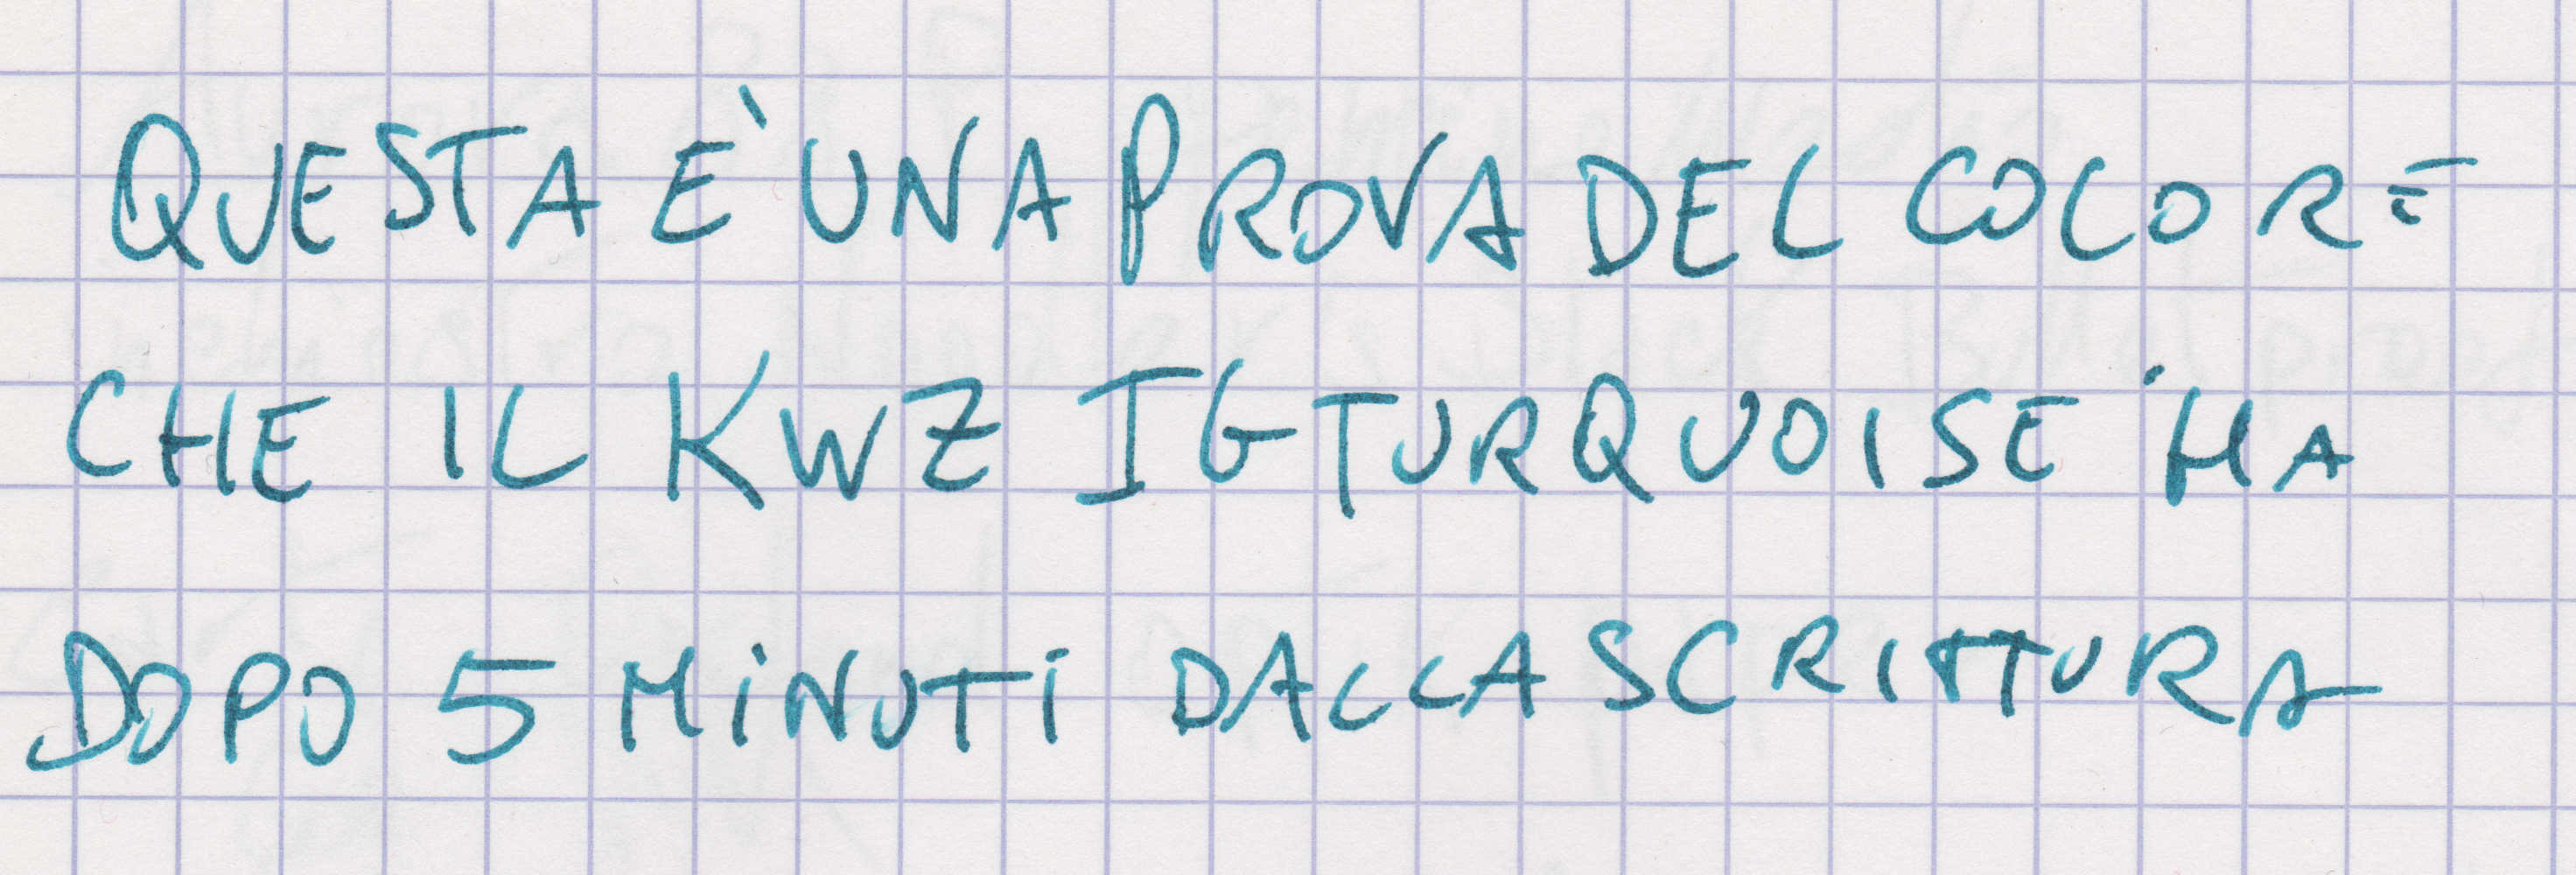 QUESTA È UNA PROVA DEL COLORE
CHE IL KWZ IG TURQUOISE HA
DOPO 5 MINUTI DALLA SCRITTURA